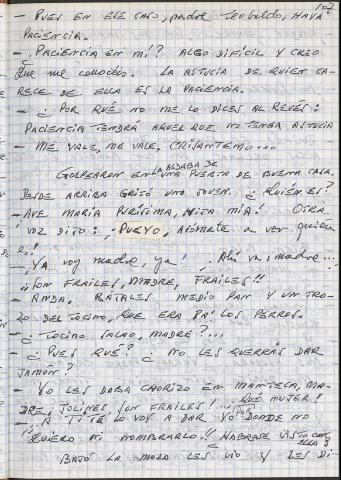 107
- PUES EN ESE CASO, padre Teobaldo, HAYA
PACIENCIA.
- ¿PACIENCIA EN MÍ? ALGO DIFÍCIL Y CREO
QUE ME CONOCÉIS. LA ASTUCIA DE QUIEN CA-
RECE DE ELLA ES LA PACIENCIA.
- ¿POR QUÉ NO ME LO DICES AL REVÉS:
PACIENCIA TENDRÁ AQUEL QUE NO TENGA ASTUCIA
- ME VALE, ME VALE, CRISANTEMO...
GOLPEARON EN LA ALDABA DE UNA PUERTA DE BUENA CASA.
DESDE ARRIBA GRITÓ UNA JOVEN. ¿QUIÉN ES?
- AVE MARÍA PURÍSIMA, HIJA MÍA! OTRA
VOZ DIJO: ¡PUEYO, ASÓMATE A VER QUIÉN
e..!
- ¡YA VOY MADRE, YA! ¡Ahí va, madre...
¡¡SON FRAILES, MADRE, FRAILES!!
- ANDA, BÁJALES MEDIO PAN Y UN TRO-
ZO DEL TOCINO, QUE ERA PA' LOS PERROS.
- ¿TOCINO SALAO, MADRE?...
- ¿PUES QUÉ? ¿NO LES QUERRÁS DAR
JAMÓN?
- YO LES DABA CHORIZO EN MANTECA, MA-
DRE. JOLINES, SON FRAILES! ... QUÉ MUJER!
- A TI TE LO VOY A DAR YO POR DONDE NO
QUIERO NI NOMBRARLO!! HABRASE VISTO CON
ELLA?
BAJÓ LA MOZA LES VIO Y LES DI-